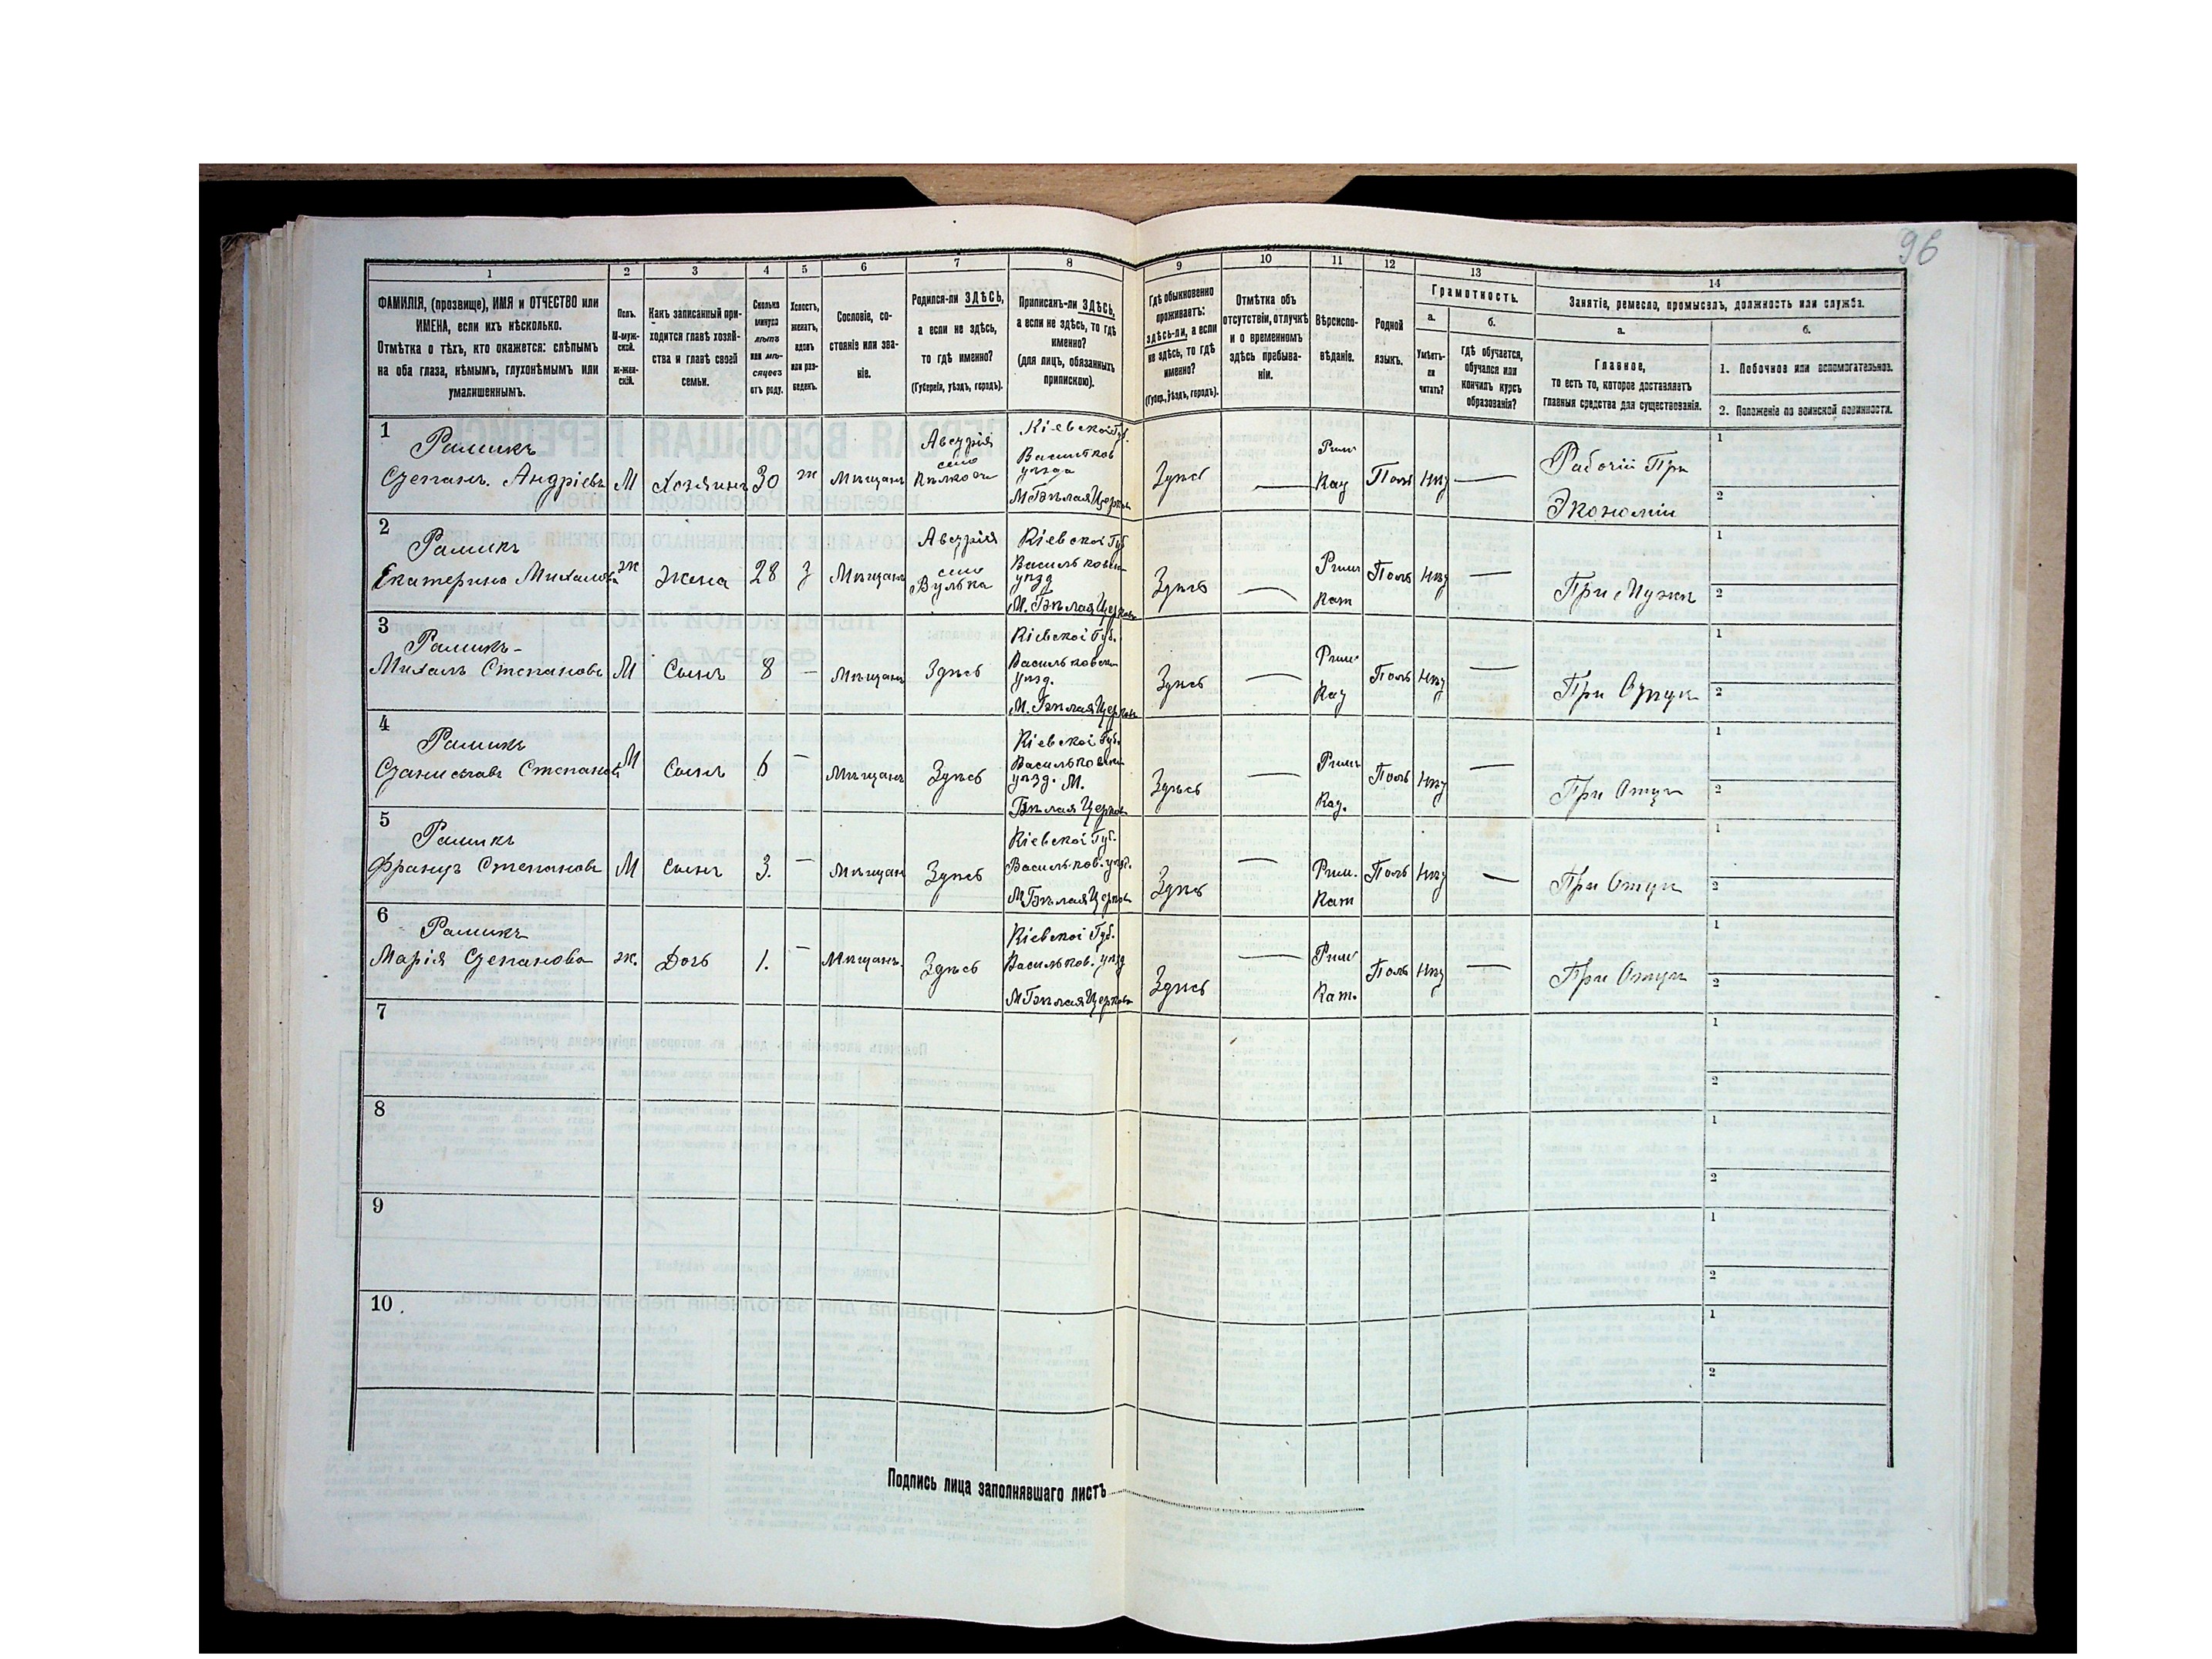 96
1 2 3 4 5 6 7 8 9 10 11 12 13 14
ФАМИЛІЯ, (прозвище), ИМЯ и ОТЧЕСТВО или
ИМЕНА, если ихъ нѣсколько.
Отмѣтка о тѣхъ, кто окажется: слѣпымъ
на оба глаза, нѣмымъ, глухонѣмымъ или
умалишеннымъ.
Полъ.
М-муж-
ской.
ж-жен-
скій.
Какъ записанный при-
ходится главѣ хозяй-
ства и главѣ своей
семьи.
Сколько
минуло
лѣтъ
или мѣ-
сяцевъ
отъ роду.
Холостъ,
женатъ,
вдовъ
или раз-
веденъ.
Сословіе, со-
стояніе или зва-
ніе.
Родился-ли ЗДѢСЬ,
а если не здѣсь,
то гдѣ именно?
(Губернія, уѣздъ, городъ).
Приписанъ-ли ЗДѢСЬ,
а если не здѣсь, то гдѣ
именно?
(для лицъ, обязанныхъ
припискою).
Гдѣ обыкновенно
проживаетъ:
здѣсь-ли, а если
не здѣсь, то гдѣ
именно?
(Губер., уѣздъ, городъ).
Отмѣтка объ
отсутствіи, отлучкѣ
и о временномъ
здѣсь пребыва-
ніи.
Вѣроиспо-
вѣданіе.
Родной
языкъ.
Грамотность.
а.
Умѣетъ-
ли
читать?
б.
гдѣ обучается,
обучался или
кончилъ курсъ
образованія?
Занятіе, ремесло, промыселъ, должность или служба.
а.
Главное,
то есть то, которое доставляетъ
главныя средства для существованія.
б.
1. Побочное или вспомогательное.
2. Положеніе по воинской повинности.
1
Степанъ Андріевъ М Хозяинъ 30 ж Мѣщанъ
Австрія
село
Кіевской Губ.
Васильков
уѣзда
М Бѣлая Церковь
Здѣсь — Рим Кат Поль Нѣт —
Рабочій При
Экономіи
1
2
2
Екатерина Михалова ж Жена 28 з Мѣщанъ
Австрія
село
Вулька
Кіевской Губ
Васильковск
уѣзд
М. Бѣлая Церковь
Здѣсь — Рим Кат Поль Нѣт —
При Мужѣ
1
2
3
Михаль Степановъ М Сынъ 8 — Мѣщанъ Здѣсь
Кіевской Губ.
Васильковск
уѣзд.
М. Бѣлая Церковь
Здѣсь — Рим Кат Поль Нѣт —
При Отцѣ
1
2
4
Станиславъ Степановъ М Сынъ 6 — Мѣщанъ Здѣсь
Кіевской Губ.
Васильковск
уѣзд. М.
Бѣлая Церковь
Здѣсь — Рим Кат. Поль Нѣт —
При Отцѣ
1
2
5
Францъ Степановъ М Сынъ 3. — Мѣщан Здѣсь
Кіевской Губ.
Васильков. уѣзд.
М Бѣлая Церковь
Здѣсь — Рим. Кат Поль Нѣт —
При Отцѣ
1
2
6
Марія Степанова ж. Дочь 1. — Мѣщанъ. Здѣсь
Кіевской Губ.
Васильков. уѣзд
М Бѣлая Церковь
Здѣсь — Рим Кат. Поль Нѣт —
При Отцѣ
1
2
7
1
2
8
1
2
9
1
2
10
1
2
Подпись лица заполнявшаго листъ